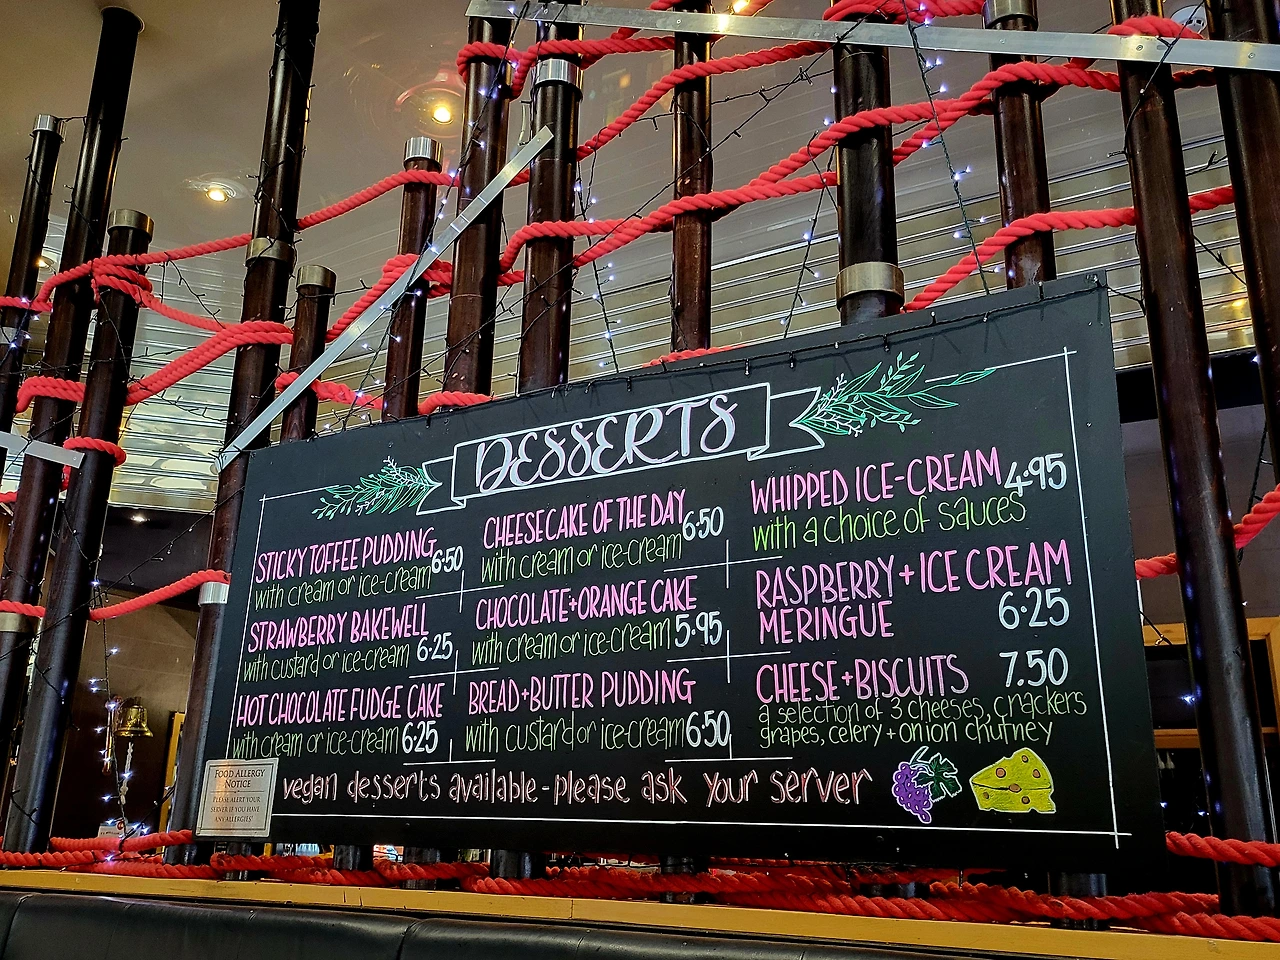 DESSERTS
STICKY TOFFEE PUDDING
with cream or ice-cream 6.50
STRAWBERRY BAKEWELL
with custard or ice-cream 6.25
HOT CHOCOLATE FUDGE CAKE
with cream or ice-cream 6.25
CHEESECAKE OF THE DAY
with cream or ice-cream 6.50
CHOCOLATE+ORANGE CAKE
with cream or ice-cream 5.95
BREAD+BUTTER PUDDING
with custard or ice-cream 6.50
WHIPPED ICE-CREAM 4.95
with a choice of sauces
RASPBERRY + ICE CREAM
MERINGUE 6.25
CHEESE+BISCUITS 7.50
a selection of 3 cheeses, crackers
grapes, celery + onion chutney
vegan desserts available - please ask your server
FOOD ALLERGY
NOTICE
PLEASE ALERT YOUR
SERVER IF YOU HAVE
ANY ALLERGIES!